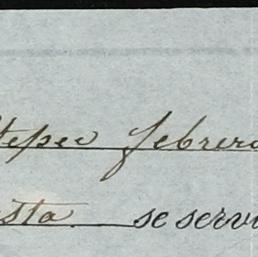 tepec febrero
sta se servi